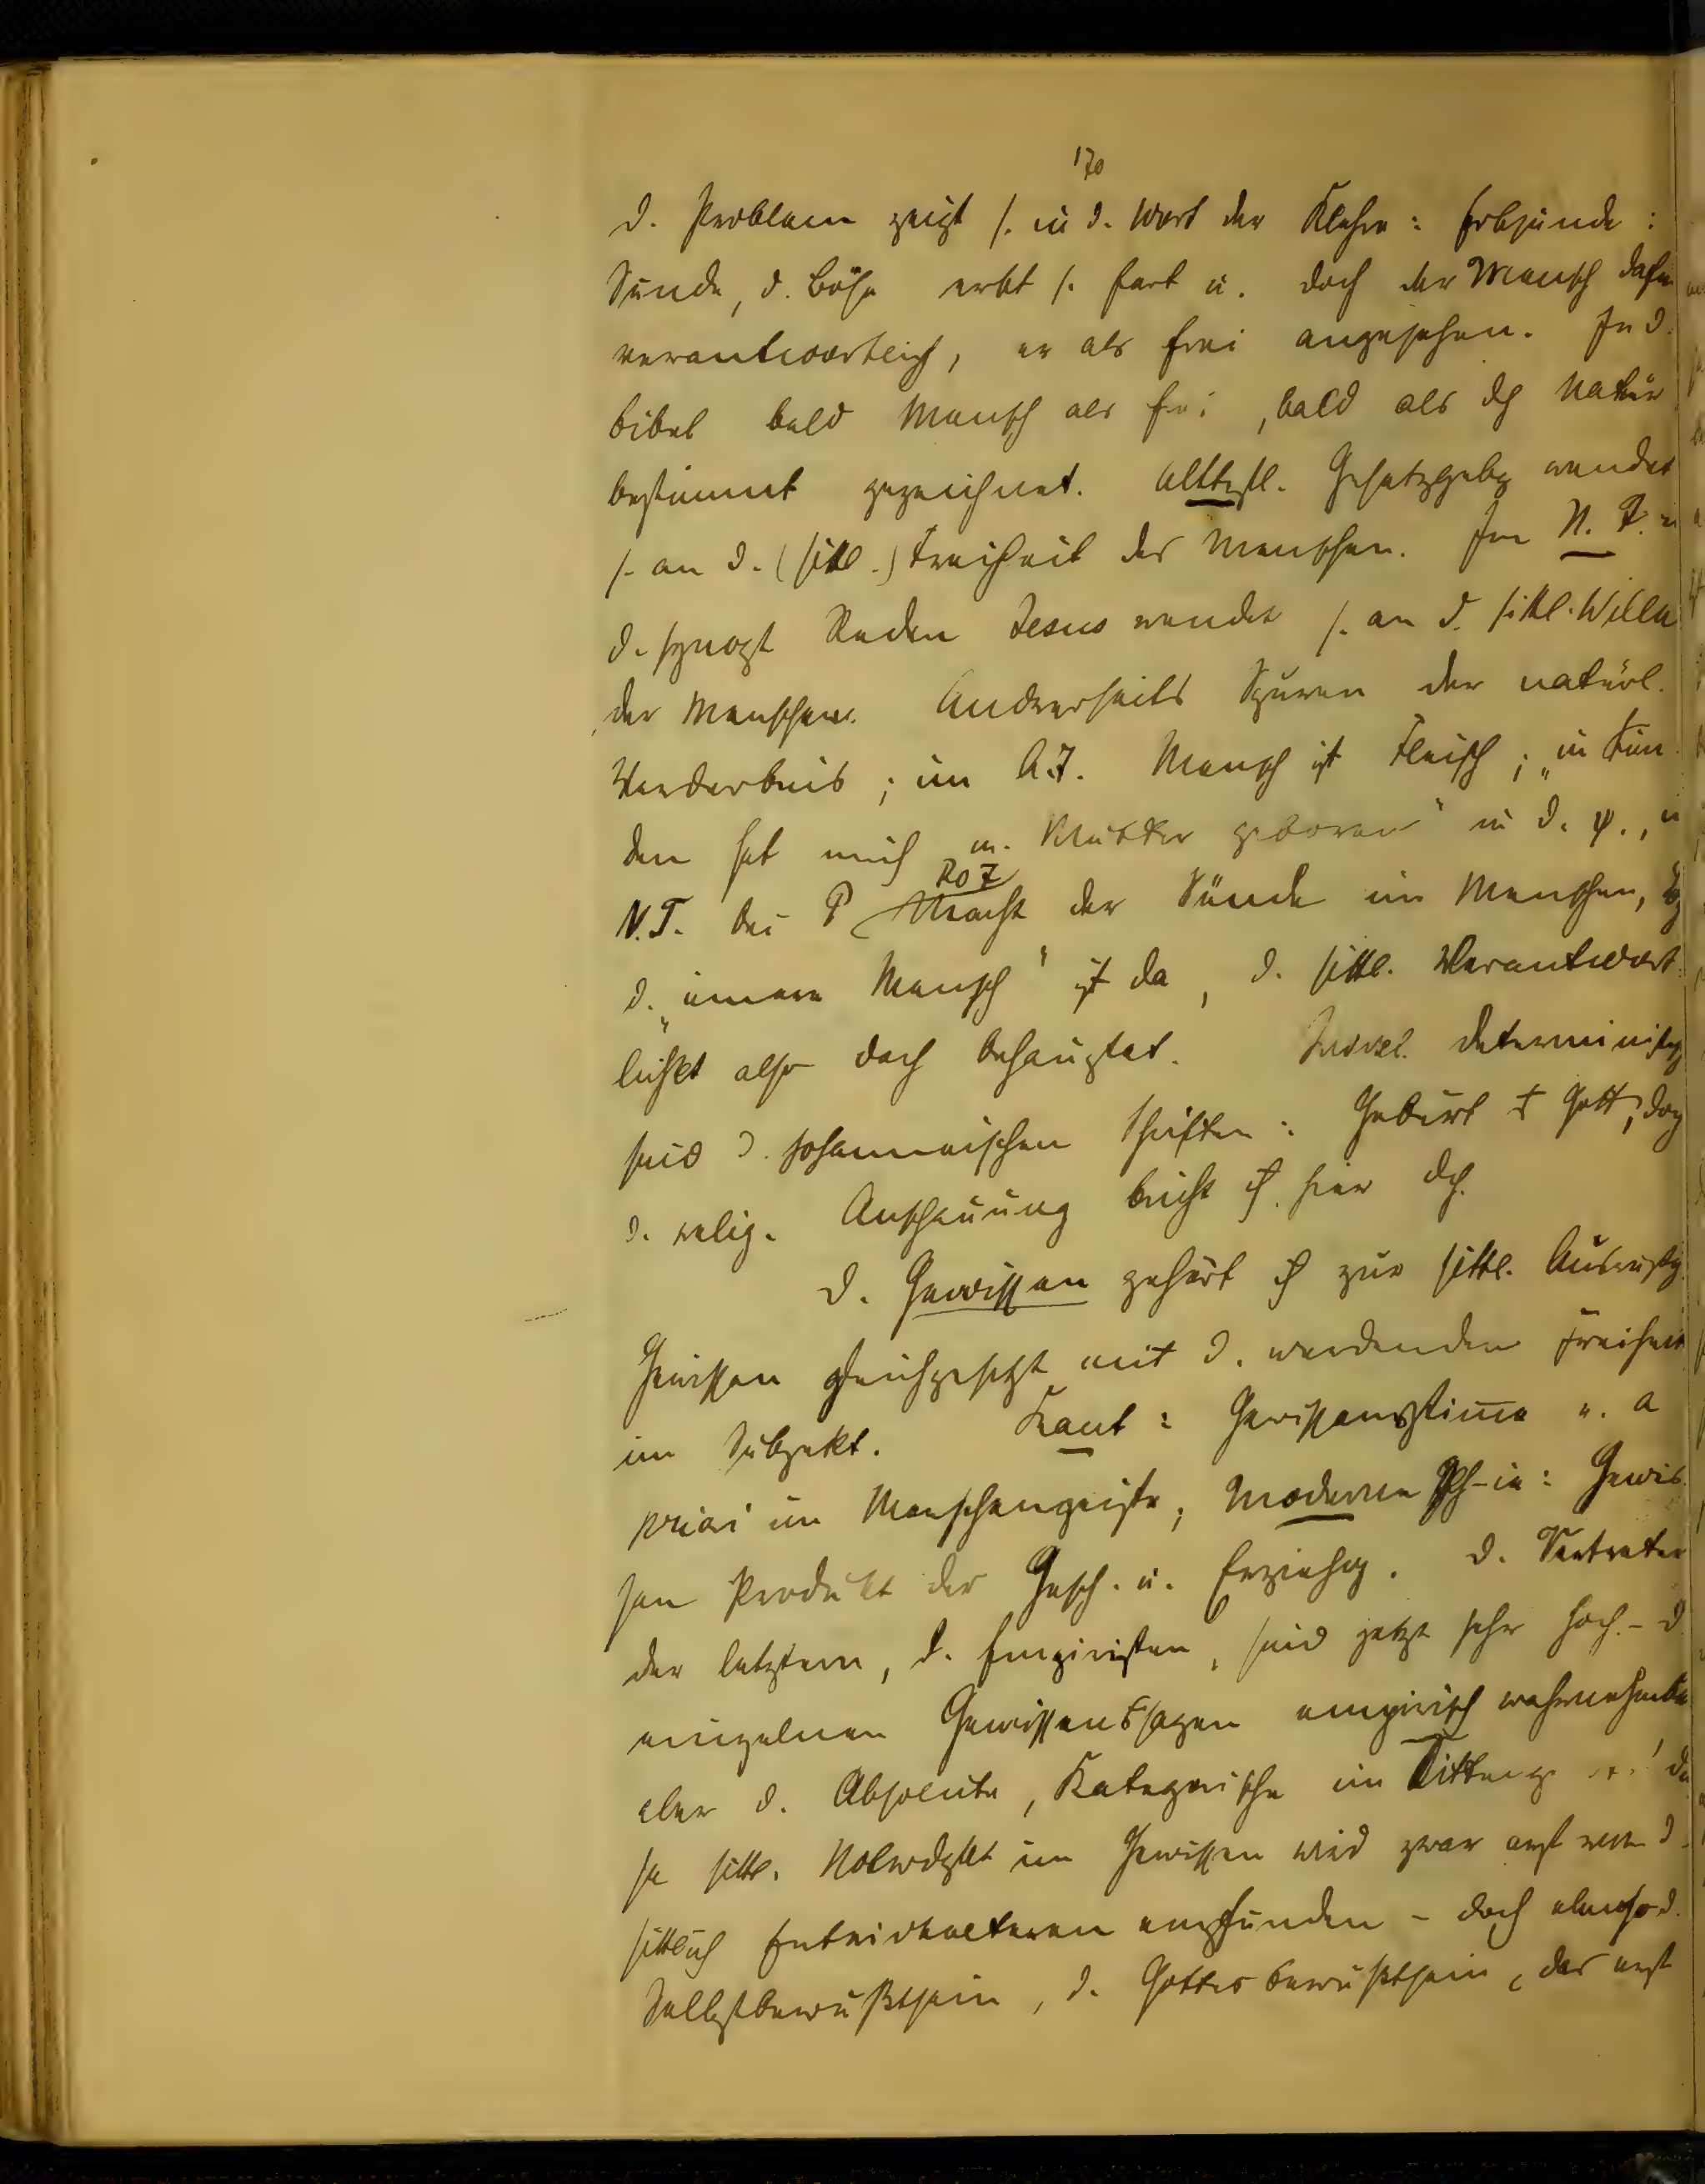 170
d. Problem zeigt s. in d. Wort der Klehre: Erbsünde:
Sünde, d. Böse erbt s. fort u. doch der Mensch dafür
verantwortlich, er als frei angesehen. In d.
Bibel bald Mensch als frei, bald als dch Natur
bestimmt gezeichnet. Alttestl. Gesetzgebg wendet
s. an d. (sittl.) Freiheit der Menschen. Im N. T. in
d. synopt Reden Jesus wendet s. an d. sittl. Willen
der Menschen. Andrerseits Spuren der natürl.
Verderbnis; im A.T. Mensch ist Fleisch; „in Sün
den hat mich m. Mutter geboren" in d. ψ.,
N.T. bei P Macht der Sünde im Menschen,
Rö 7
d. „innere Mensch" ist da, d. sittl. Verantwort
lichkt also doch behauptet. determinist
sind d. johanneischen Schriften: Geburt Gott, doch
d. relig. Anschauung bricht hier dch.
D. Gewissen gehört zur sittl. Ausrüstg.
Gewissen gleichgesetzt mit d. werdenden Freiheit
im Subjekt. Kant: Gewissensstimme a
priori im Menschengeiste; moderne: Gewis
sen Produkt der Gesch. u. Erziehg. D. Vertreter
der letztern, d. Empiristen, sind jetzt sehr hoch. - D
einzelnen Gewissens empirisch wahrnehmbar
aber d. Absolute, Kategorische im
se sittl. Notwdgkt im Gewissen wird zwar erst von d.
sittlich Entwickelteren empfunden - doch ebenso d.
Selbstbewußtsein, d. Gottesbewußtsein, das erst